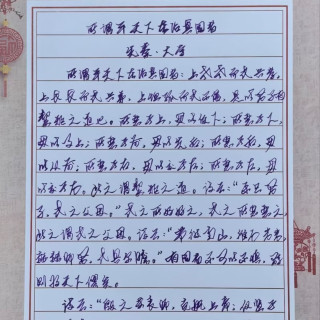 所谓平天下在治其国者
先秦·大学
所谓平天下在治其国者：上老老而民兴孝，
上长长而民兴弟，上恤孤而民不倍，是以君子有
絜矩之道也。所恶于上，毋以使下；所恶于下，
毋以事上；所恶于前，毋以先后；所恶于后，毋
以从前；所恶于右，毋以交于左；所恶于左，毋
以交于右。此之谓絜矩之道。诗云：“乐只君
子，民之父母。”民之所好好之，民之所恶恶之，
此之谓民之父母。诗云：“节彼南山，维石岩岩，
赫赫师尹，民具尔瞻。”有国者不可以不慎，辟
则为天下僇矣。
诗云：“殷之丧师，克配上帝；仪鉴于